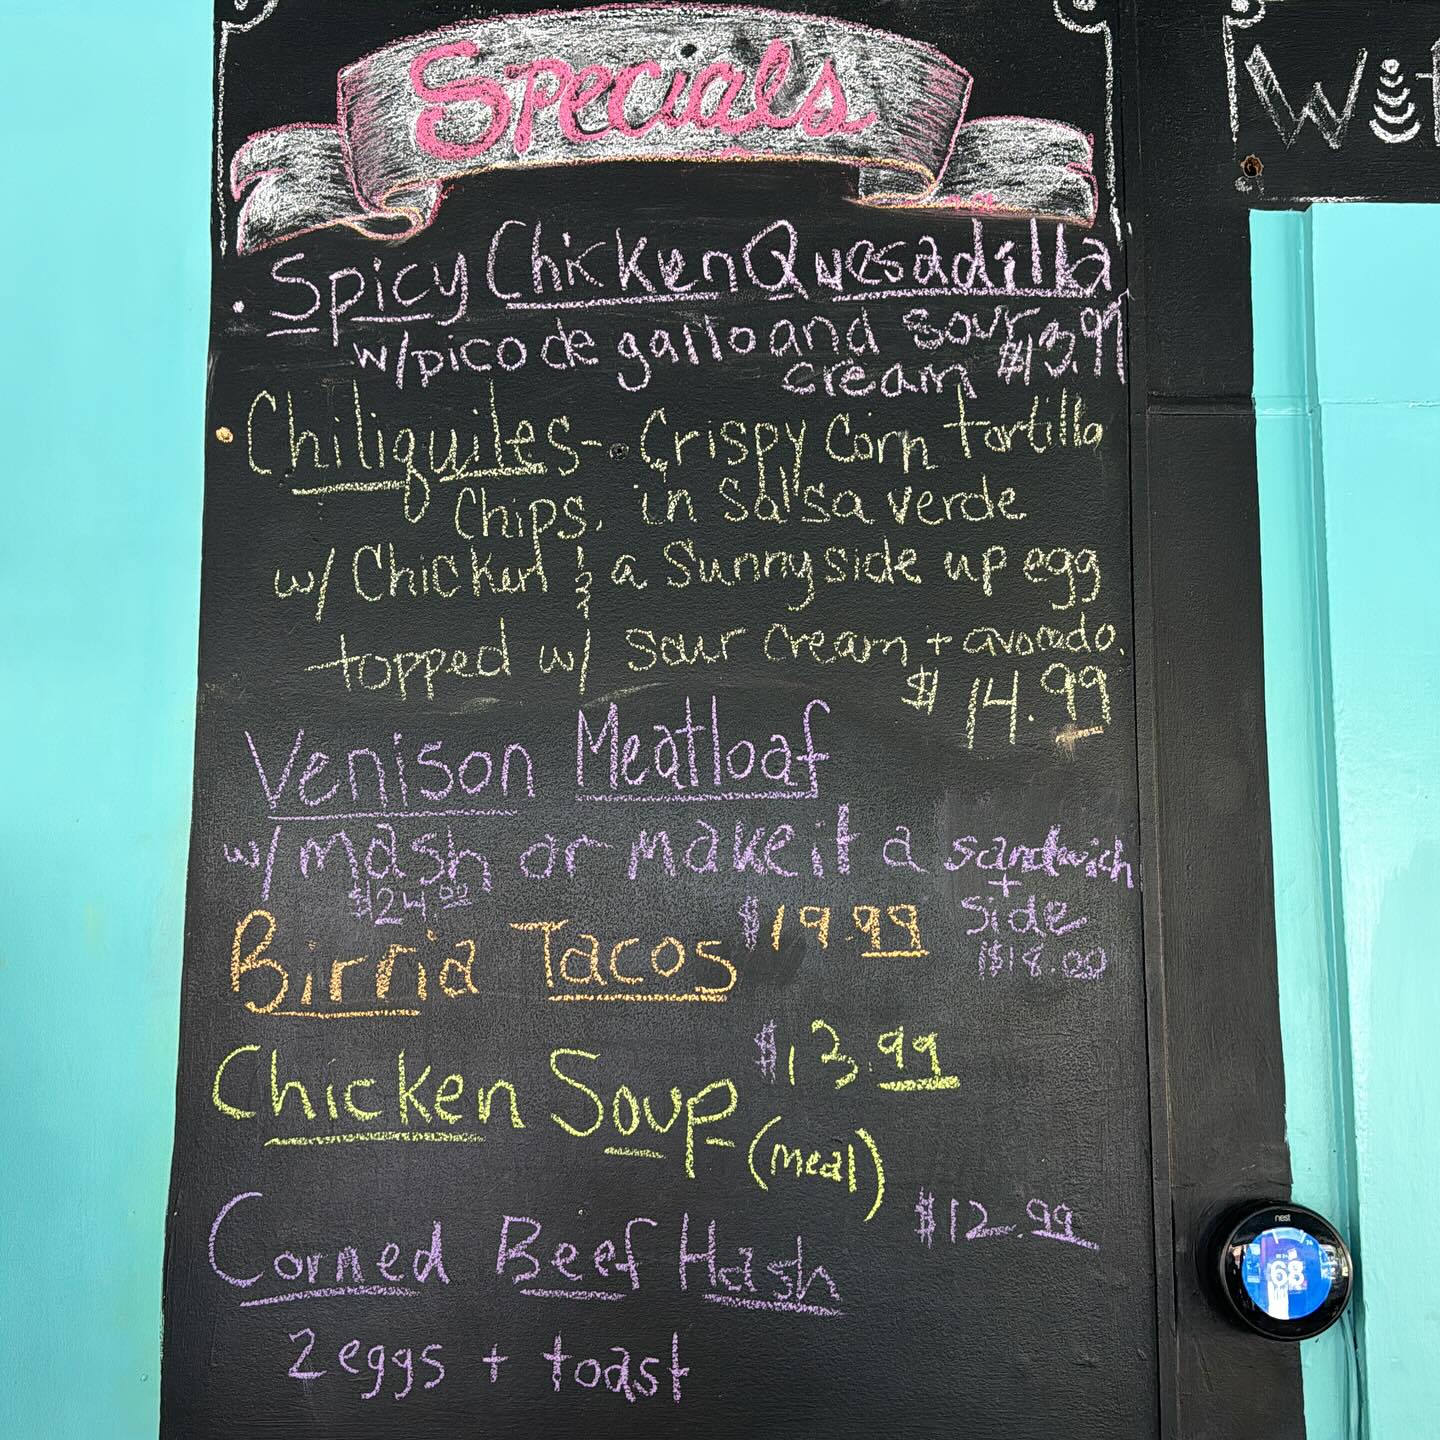 Specials
Spicy Chicken Quesadilla
w/pico de gallo and sour
cream $13.99
Chiliquiles - Crispy Corn tortilla
Chips. in Salsa verde
w/ Chicken & a Sunny side up egg
topped w/ sour cream + avocado.
$14.99
Venison Meatloaf
w/ mash or make it a sandwich
$24.00
+
side
$18.00
Birria Tacos $19.99
Chicken Soup $13.99
(meal)
Corned Beef Hash $12.99
2 eggs + toast
nest
68